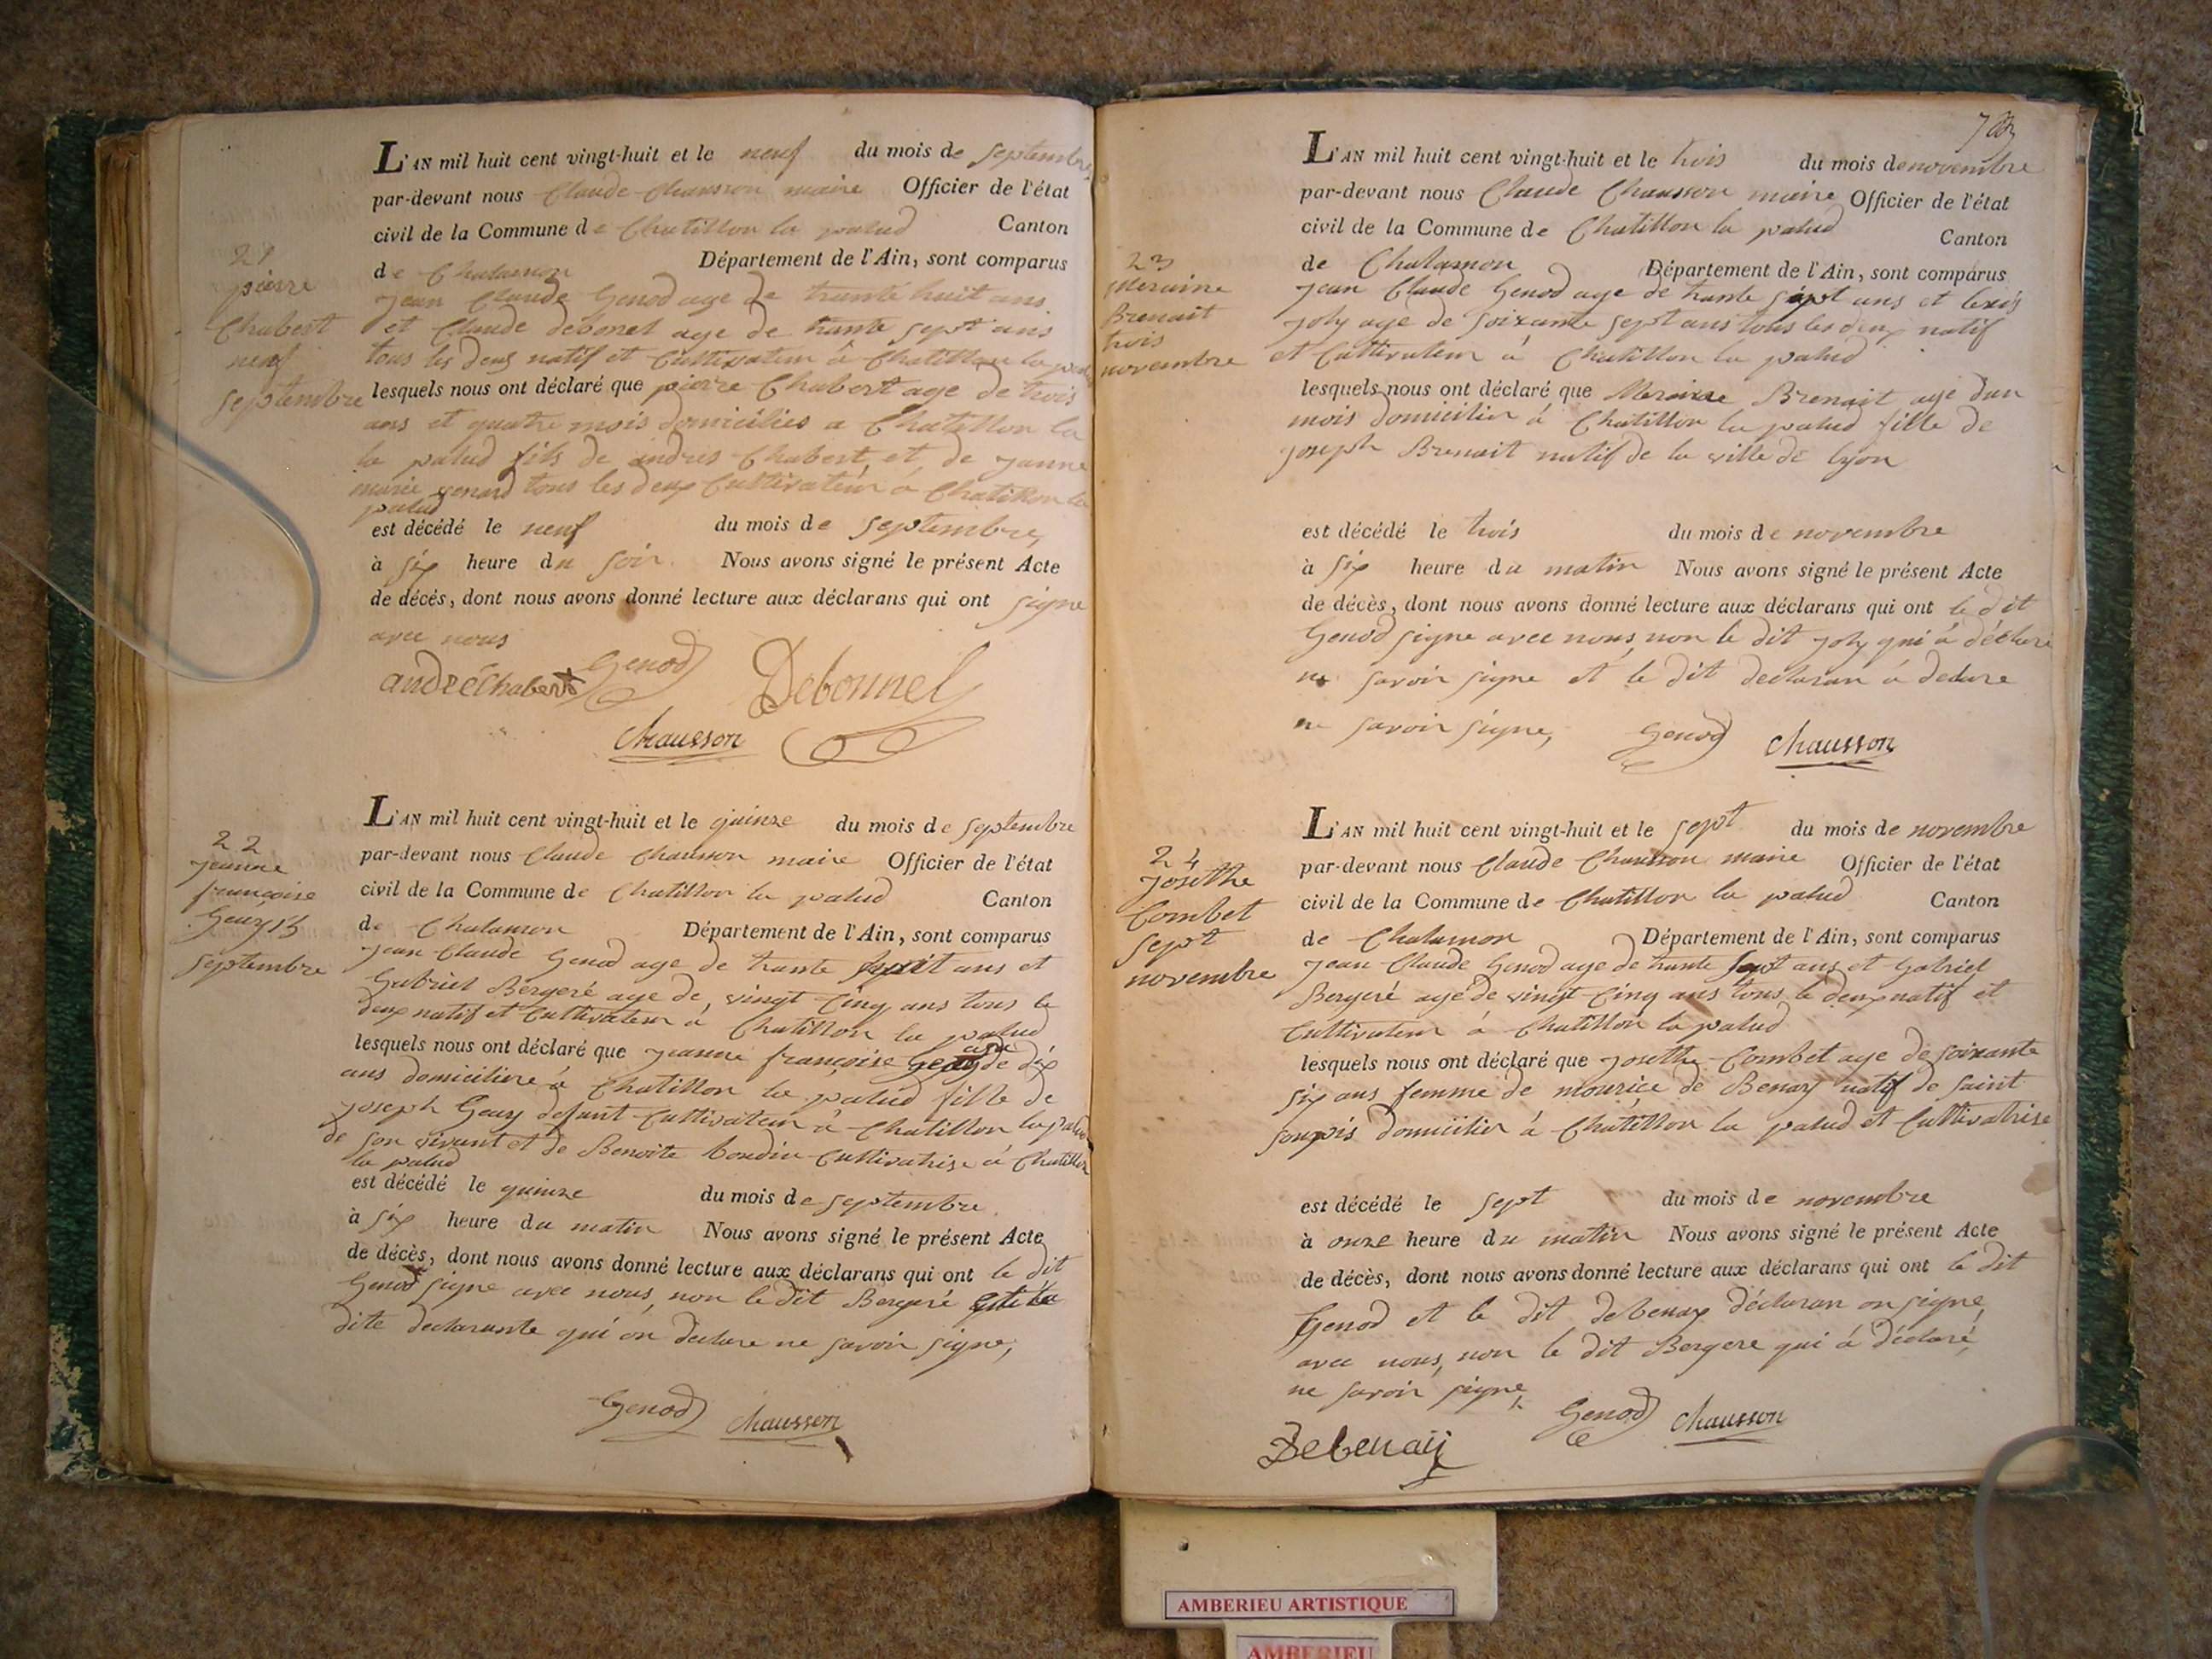 21
pierre
Chabert
neuf
septembre
L'AN mil huit cent vingt-huit et le neuf du mois de septembre
par-devant nous Claude Chausson maire Officier de l'état
civil de la Commune de Chatillon la palud Canton
de Chalamon Département de l'Ain, sont comparus
jean Claude Genod age de trante huit ans
et Claude debonel age de trante sept ans
tous les deux natif et Cultivateur à Chatillon la palud
lesquels nous ont déclaré que pierre Chabert age de trois
ans et quatre mois domicilies a Chatillon la
la palud fils de andres Chabert et de janne
marie genard tous les deux Cultivateur à Chatillon la
palud
est décédé le neuf du mois de septembre
à six heure du soir. Nous avons signé le présent Acte
de décés, dont nous avons donné lecture aux déclarans qui ont signe
avec nous
andré Chabert Genod Debonnel
Chausson
22
jeanne
françoise
Geay 15
septembre
L'AN mil huit cent vingt-huit et le quinze du mois de septembre
par-devant nous Claude Chausson maire Officier de l'état
civil de la Commune de Chatillon la palud Canton
de Chalamon Département de l'Ain, sont comparus
jean Claude Genod age de trante ans et
Gabriel Bergeré age de vingt Cinq ans tous le
deux natif et Cultivateur à Chatillon la palud
lesquels nous ont déclaré que jeanne françoise geay age de dix
ans domiciliere à Chatillon la palud fille de
joseph Geay defunt Cultivateur à Chatillon la palud
de son vivant et de Benoite boudin Cultivatrise à Chatillon
la palud
est décédé le quinze du mois de septembre
à six heure du matin Nous avons signé le présent Acte
de décès, dont nous avons donné lecture aux déclarans qui ont le dit
Genod signe avec nous, non le dit Bergeré la
dite declarante qui on declare ne savoir signe,
Genod Chausson
23
Brenait
trois
novembre
L'AN mil huit cent vingt-huit et le trois du mois de novembre
par-devant nous Claude Chausson maire Officier de l'état
civil de la Commune de Chatillon la palud Canton
de Chalamon Département de l'Ain, sont comparus
jean Claude Genod age de trante sept ans et lexis
joly age de soixante sept ans tous les deux natif
et Cultivateur à Chatillon la palud
lesquels nous ont déclaré que Brenait age dun
mois domicilier à Chatillon la palud fille de
joseph Brenait natif de la ville de lyon
est décédé le trois du mois de novembre
à six heure du matin Nous avons signé le présent Acte
de décès, dont nous avons donné lecture aux déclarans qui ont le dit
Genod signe avec nous, non le dit joly qui à déclare
ne savoir signe et le dit declaran à declare
ne savoir signe, Genod Chausson
24
josethe
Combet
sept
novembre
L'AN mil huit cent vingt-huit et le sept du mois de novembre
par-devant nous Claude Chausson maire Officier de l'état
civil de la Commune de Chatillon la palud Canton
de Chalamon Département de l'Ain, sont comparus
jean Claude Genod age de trante sept ans et Gabriel
Bergeré agé de vingt Cinq ans tous le deux natif et
Cultivateur à Chatillon la palud
lesquels nous ont déclaré que josethe Combet age de soixante
six ans femme de mourice de Benay natif de saint
domicilier à Chatillon la palud et Cultivatrise
est décédé le sept du mois de novembre
à onze heure du matin Nous avons signé le présent Acte
de décès, dont nous avons donné lecture aux déclarans qui ont le dit
Genod et le dit debenay déclaran on signe,
avec nous, non le dit Bergere qui à déclaré,
ne savoir signe,
Genod Chausson
Debenaÿ
AMBERIEU ARTISTIQUE
AMBERIEU